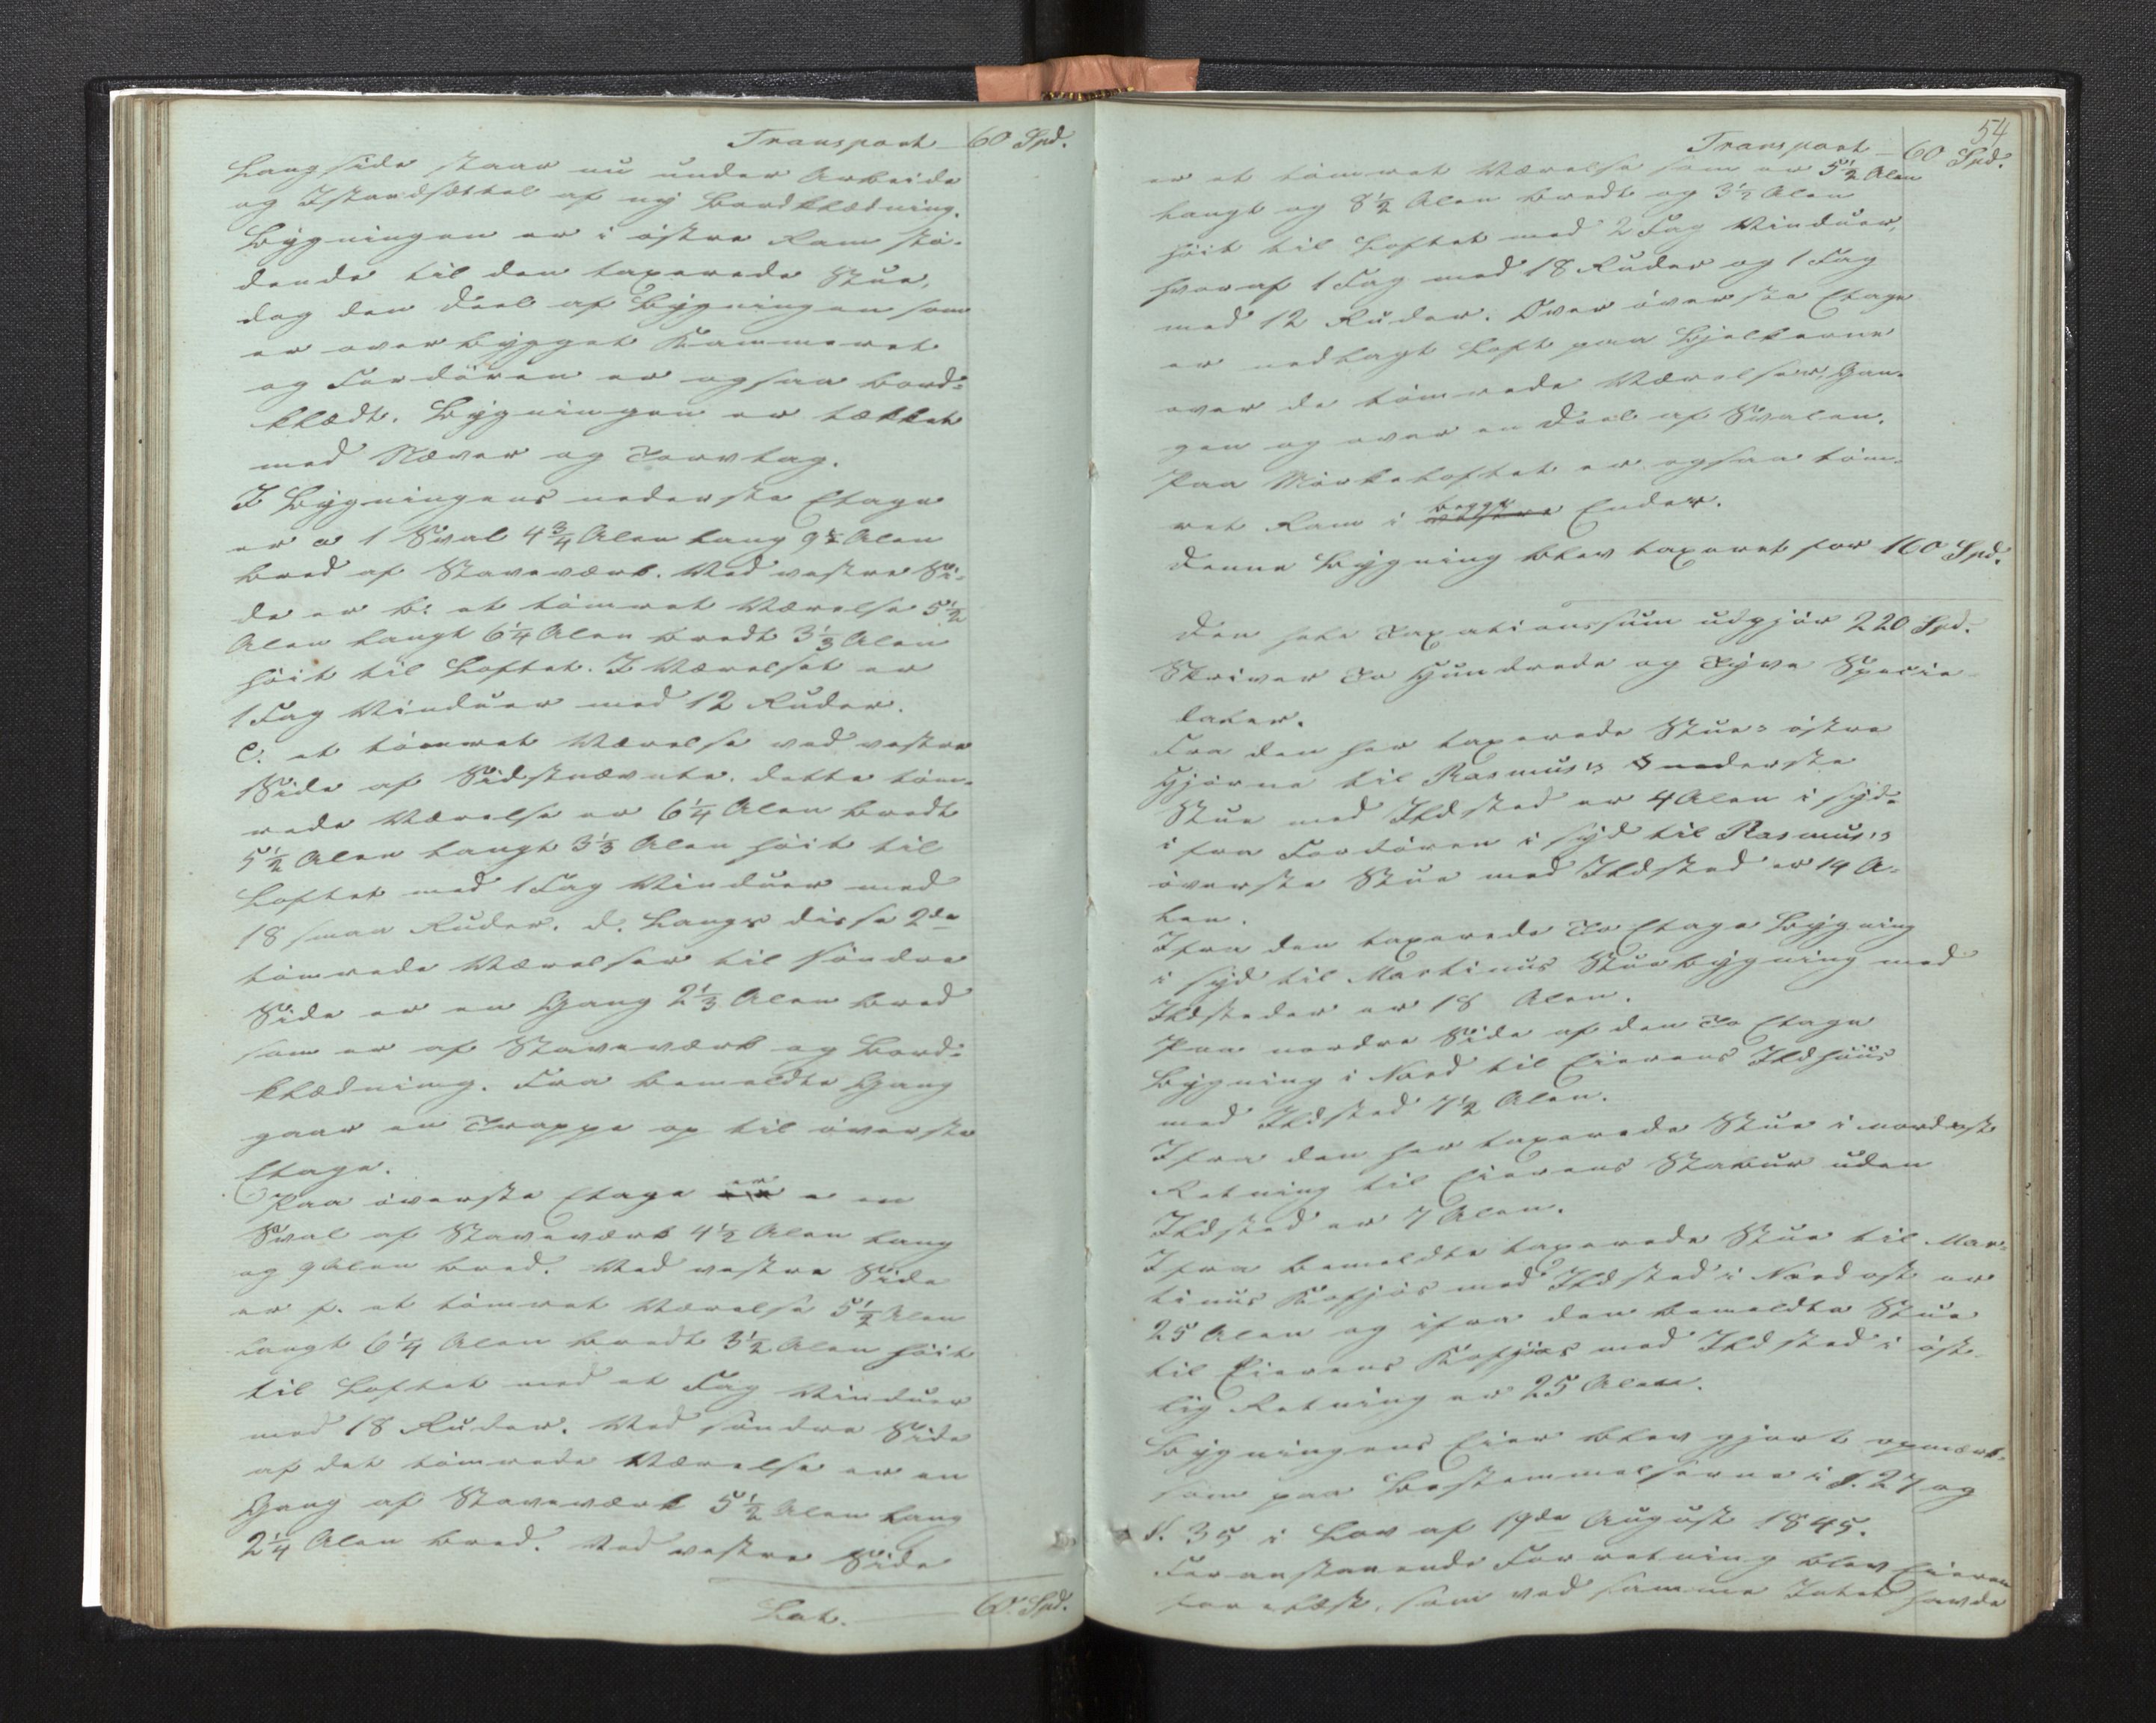 Transport 60 Spd.
Langside staar nu under Arbeide
og Istandsættel af ny Bordklædning.
Bygningen er i östre Ram stö-
dende til den taxerede Stue,
dog den Deel af Bygningen som
er overbygget Kammeret
og Fordören er ogsaa bord-
klædt. Bygningen er tækket
med Næver og Torvtag.
I Bygningens nederste Etage
er a 1 Sval 4 3/4 Alen lang 9 Alen
bred af Staveværk. Ved vestre Si-
de er b: et tömret Værelse 5 1/2
Alen langt 6 1/4 Alen bredt 3 1/3 Alen
höit til Loftet. I Værelset er
1 Fag Vinduer med 12 Ruder.
C: et tömret Værelse ved vestre
Side af Sidstnævnte. dette töm-
rede Værelse er 6 1/4 Alen bredt
5 1/2 Alen langt 3 1/3 Alen höit til
Loftet med 1 Fag Vinduer med
18 smaa Ruder. d. Langs disse 2de
tömrede Værelser til söndre
Side er en Gang 2 1/3 Alen bred
som er af Staveværk og Bord-
klædning. Fra bemeldte Gang
gaar en Trappe op til överste
Etage.
Paa överste Etage er e en
Sval af Staveværk 4 1/2 Alen lang
og 9 Alen bred. Ved vestre Side
er f. et tömret Værelse 5 1/2 Alen
langt 6 1/4 Alen bredt 3 1/2 Alen höit
til Loftet med et Fag Vinduer
med 18 Ruder. Ved söndre Side
af det tömrede Værelse er en
Gang af Staveværk 5 1/2 Alen lang
2 1/4 Alen bred. Ved vestre Side
Lat. 60. Spd.
54
Transport 60 Spd.
er et tömret Værelse som er 5 1/2 Alen
langt og 8 1/2 Alen bredt og 3 1/2 Alen
höit til Loftet med 2 Fag Vinduer,
hvoraf 1 Fag med 18 Ruder og 1 Fag
med 12 Ruder. Over överste Etage
er nedlagt Loft paa Bjelkerne
over de tömrede Værelser, Gan-
gen og over en Deel af Svalen.
Paa Mörkeloftet er ogsaa töm-
ret Ram i begge Ender.
Denne Bygning blev taxeret for 160 Spd.
Den hele Taxationssum udgjör 220 Spd.
Skriver To Hundrede og Tyve Specie
daler.
Fra den her taxerede Stue's östre
Hjörne til Rasmus's nederste
Stue med Ildsted er 4 Alen i syd.
ifra Fordören i syd til Rasmus's
överste Stue med Ildsted er 14 A-
len.
Ifra den taxerede To Etage Bygning
i syd til Martinus Stuebygning med
Ildsteder er 18 Alen.
Paa nordre Side af den To Etage
Bygning i Nord til Eierens Ildhuus
med Ildsted 7 1/2 Alen.
Ifra den her taxerede Stue i nordost
Retning til Eierens Stabur uden
Ildsted er 7 Alen.
Ifra bemeldte taxerede Stue til Mar-
tinus Kofjös med Ildsted i Nordost er
25 Alen og ifra den bemeldte Stue
til Eierens Kofjös med Ildsted i öst-
lig Retning er 25 Alen.
Bygningens Eier blev gjort opmærk-
som paa Bestemmelserne i §. 27 og
§. 35 i Lov af 19de August 1845.
Foranstaaende Forretning blev Eieren
forelæst, som ved samme Intet havde